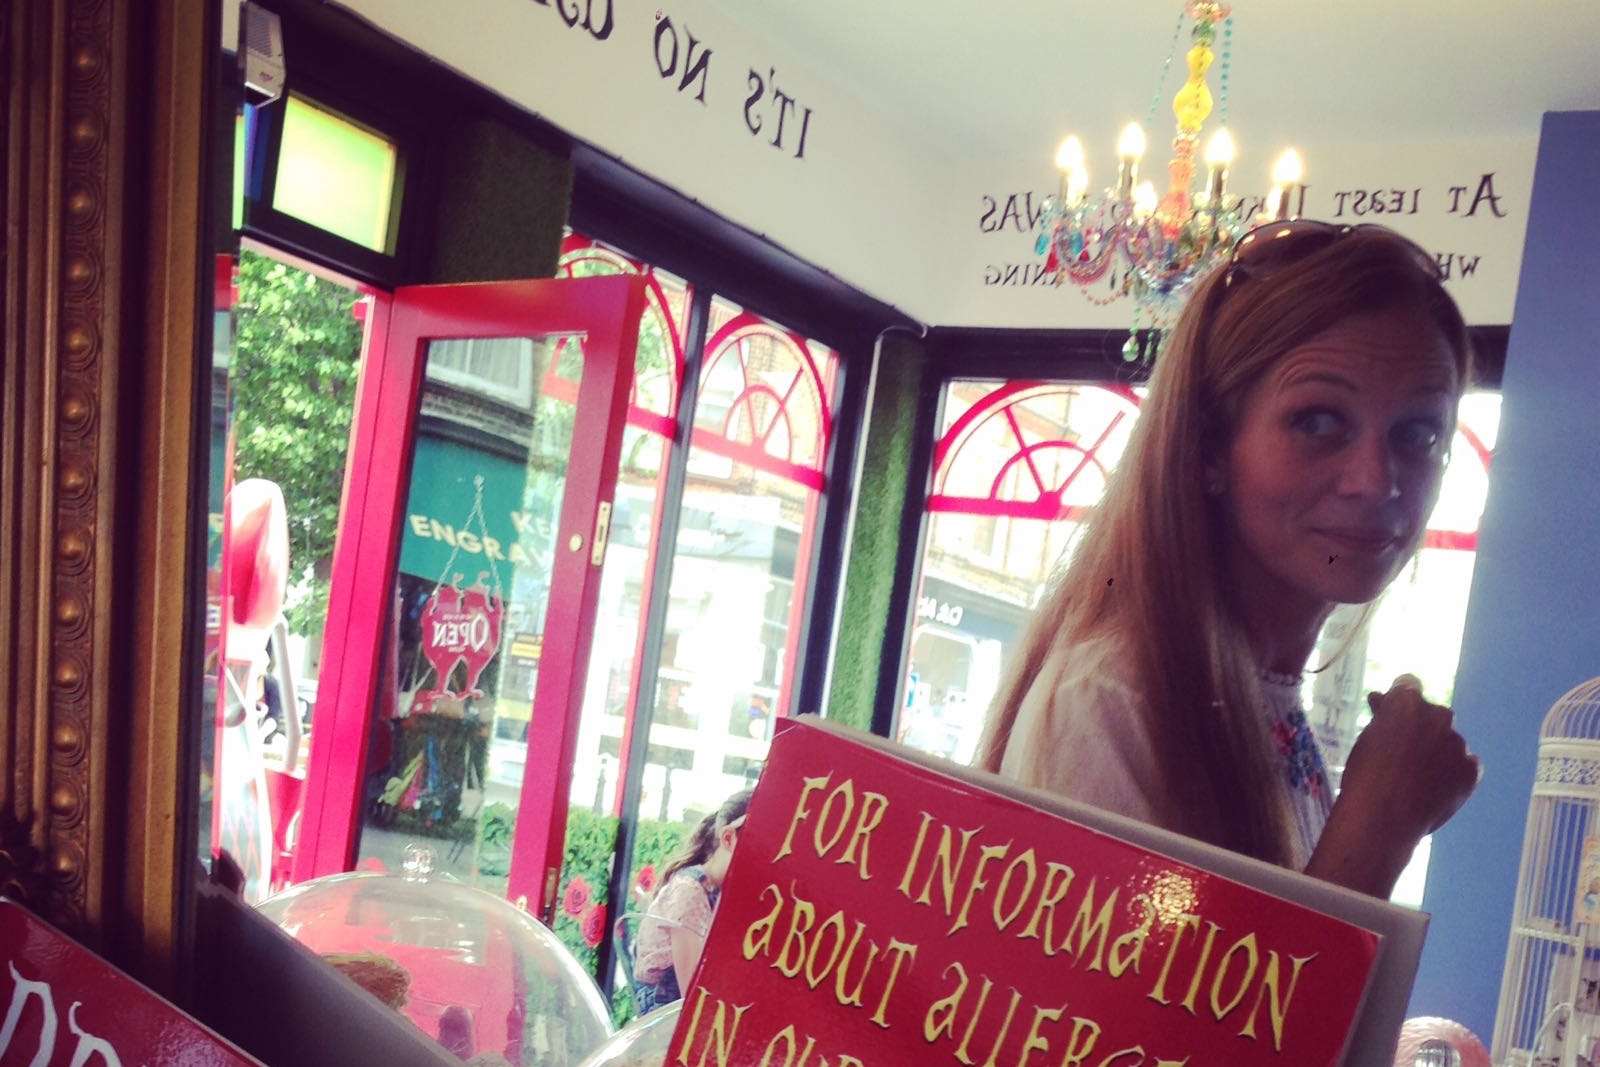 IT'S NO
AT LEAST I
WAS
WH
NING
KE
ENGRA
OPEN
FOR INFORMATION
ABOUT ALLERGE
IN OUR